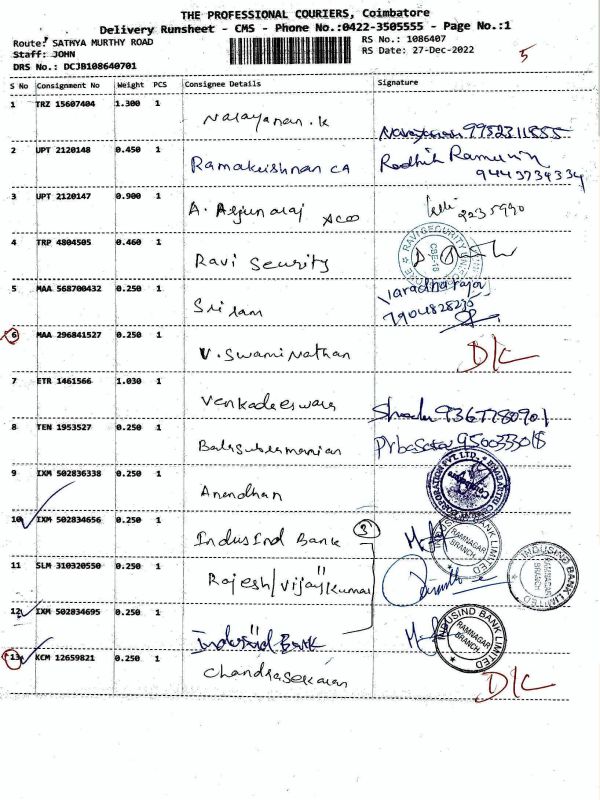 THE PROFESSIONAL COURIERS, Coimbatore
Delivery Runsheet - CMS - Phone No.:0422-3505555 - Page No.:1
Route: SATHYA MURTHY ROAD
Staff: JOHN
DRS No.: DCJB108640701
RS No.: 1086407
RS Date: 27-Dec-2022
5
S No Consignment No Weight PCS Consignee Details Signature
1 TRZ 15607404 1.300 1 Narayanan.k Narayanan 9952311855
2 UPT 2120148 0.450 1 Ramakrishnan CA
9443734334
3 UPT 2120147 0.900 1 A. Arjunaraj 2235990
4 TRP 4804505 0.460 1 Ravi Security RAVI SECURITY
5 MAA 568700432 0.250 1 Sriram Varadharaja
7904828230
6 MAA 296841527 0.250 1 V. Swaminathan D/C
7 ETR 1461566 1.030 1 Venkadeeswara 9367780901
8 TEN 1953527 0.250 1 Balasubramanian 9500333018
9 IXM 502836338 0.250 1 Anandhan
10 IXM 502834656 0.250 1 IndusInd Bank INDUSIND BANK LIMITED RAMNAGAR BRANCH
11 SLM 310320550 0.250 1 Rajesh/Vijay Kumar INDUSIND BANK LIMITED RAMNAGAR BRANCH
12 IXM 502834695 0.250 1 IndusInd Bank INDUSIND BANK LIMITED RAMNAGAR BRANCH
13 KCM 12659821 0.250 1 Chandrasekaran D/C